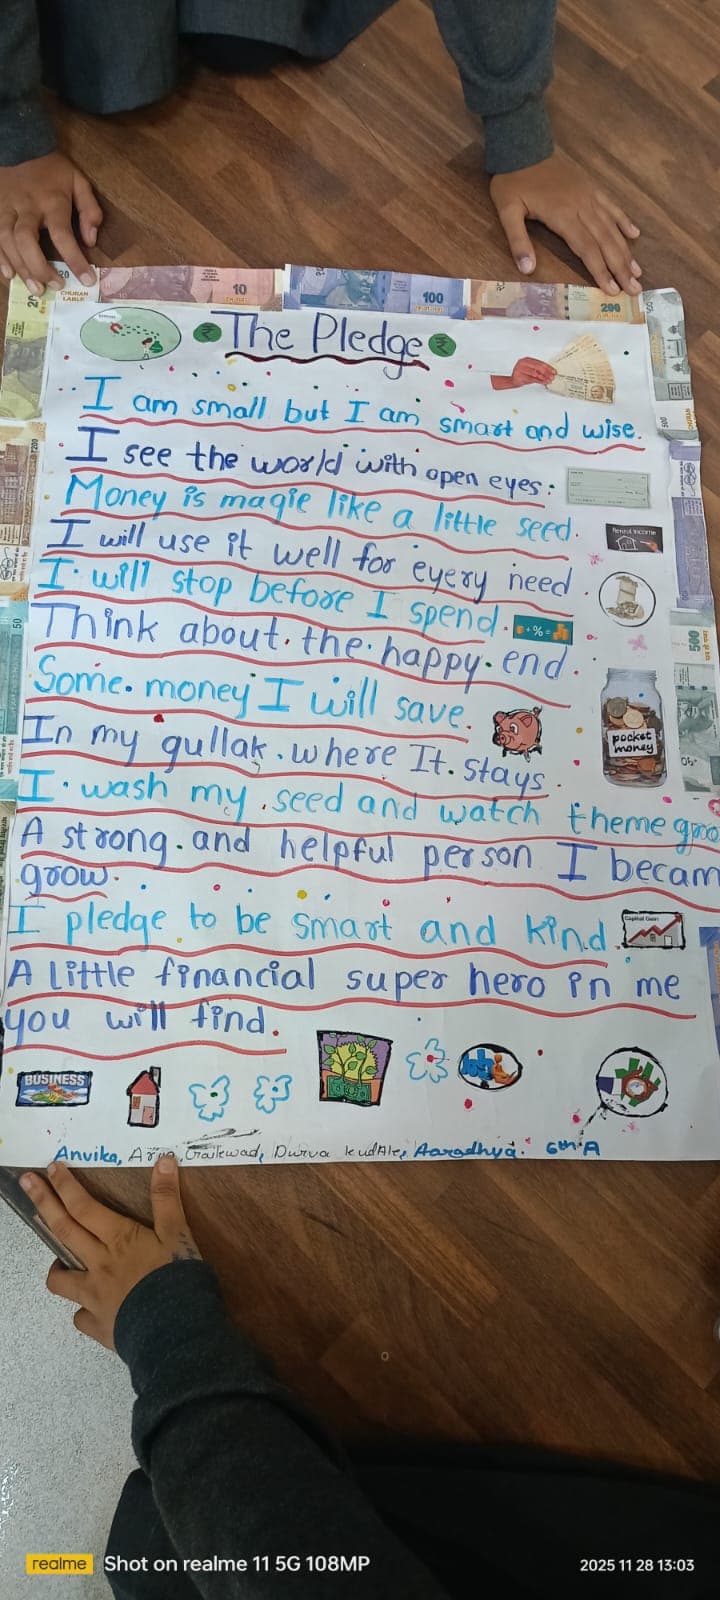 The Pledge
I am small but I am smart and wise.
I see the world with open eyes:
Money is magic like a little seed.
I will use it well for every need.
I will stop before I spend.
Think about the happy end.
Some money I will save.
In my gullak where It stays.
I wash my seed and watch theme groo
A strong and helpful person I becam
grow.
I pledge to be smart and kind
A little financial super hero in me
you will find.
20
CHURAN LABLE
10
100
200
500
50
500
Rental Income
pocket money
Capital Gain
BUSINESS
Anvika, Gaikwad, Durva kudAle, Aaradhya. 6th A
realme Shot on realme 11 5G 108MP
2025 11 28 13:03